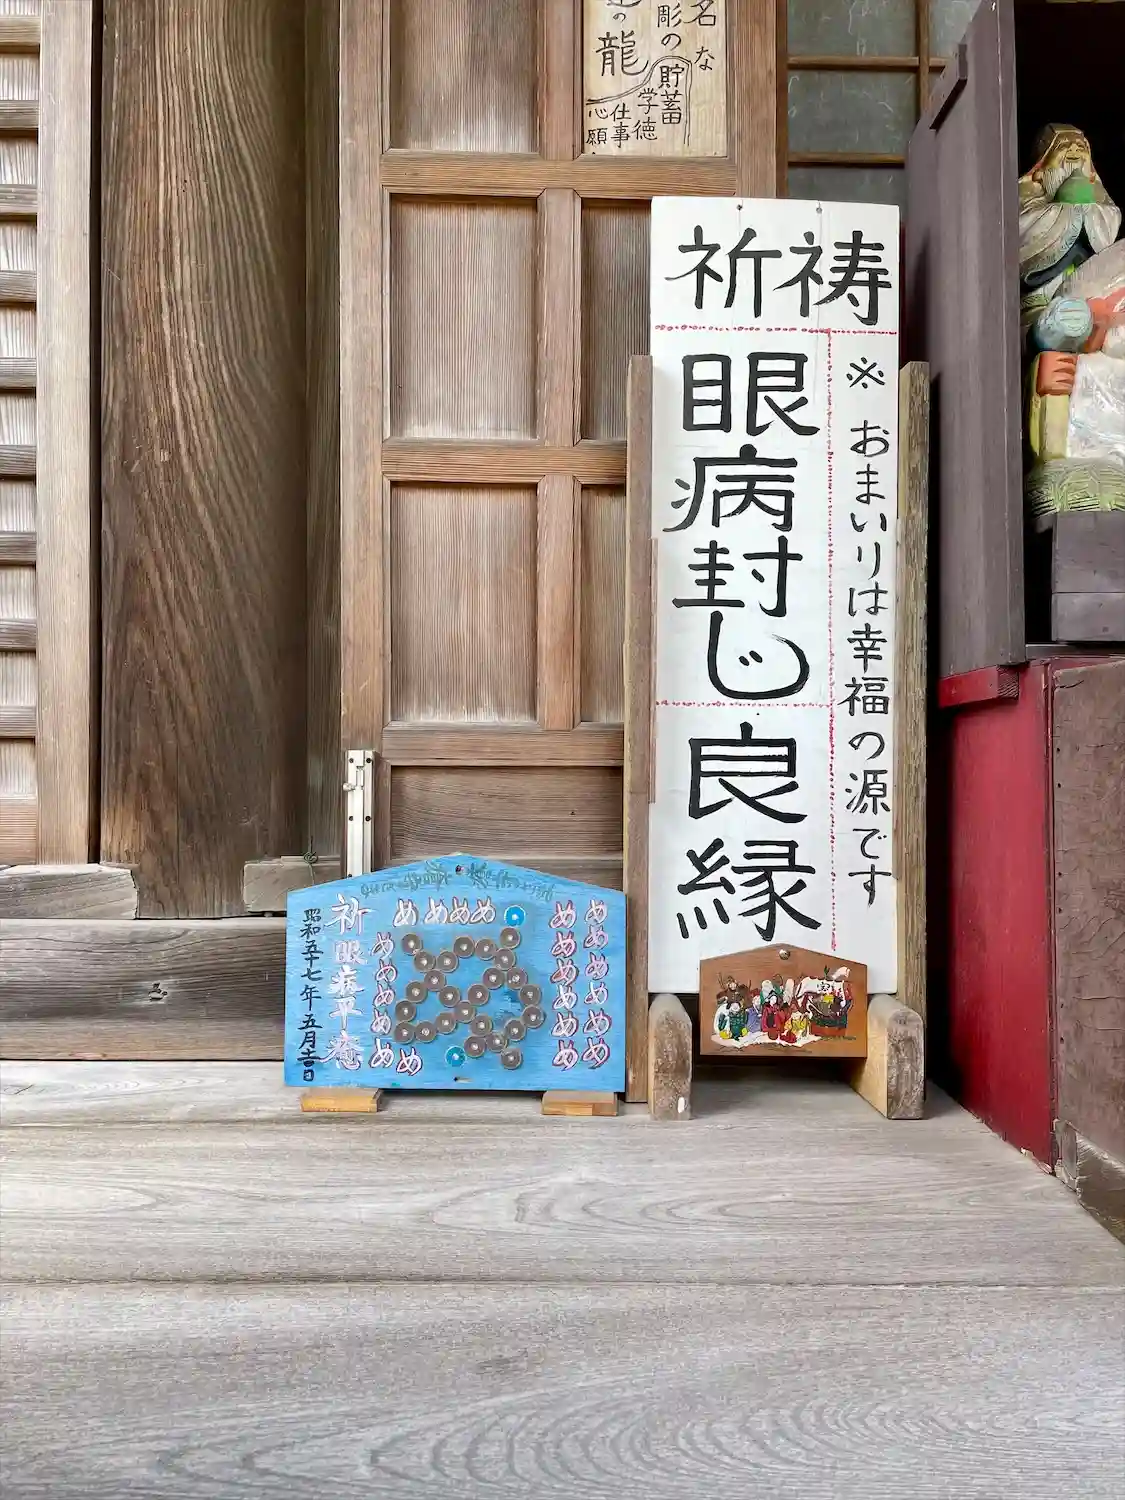 名な
彫の
の龍
貯蓄
学徳
仕事
心願
祈祷
※おまいりは幸福の源です
眼病封じ
良縁
めめめめ
めめめめめめ
めめめめめめ
めめめめ
めめ
祈眼病平癒
昭和五十七年五月吉日
宝